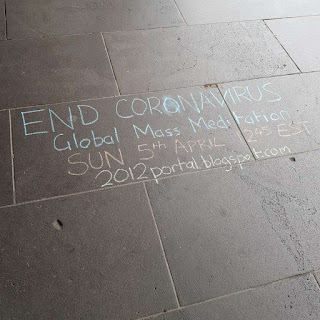 END CORONAVIRUS
Global Mass Meditation
SUN 5TH APRIL 245 EST
2012portal.blogspot.com